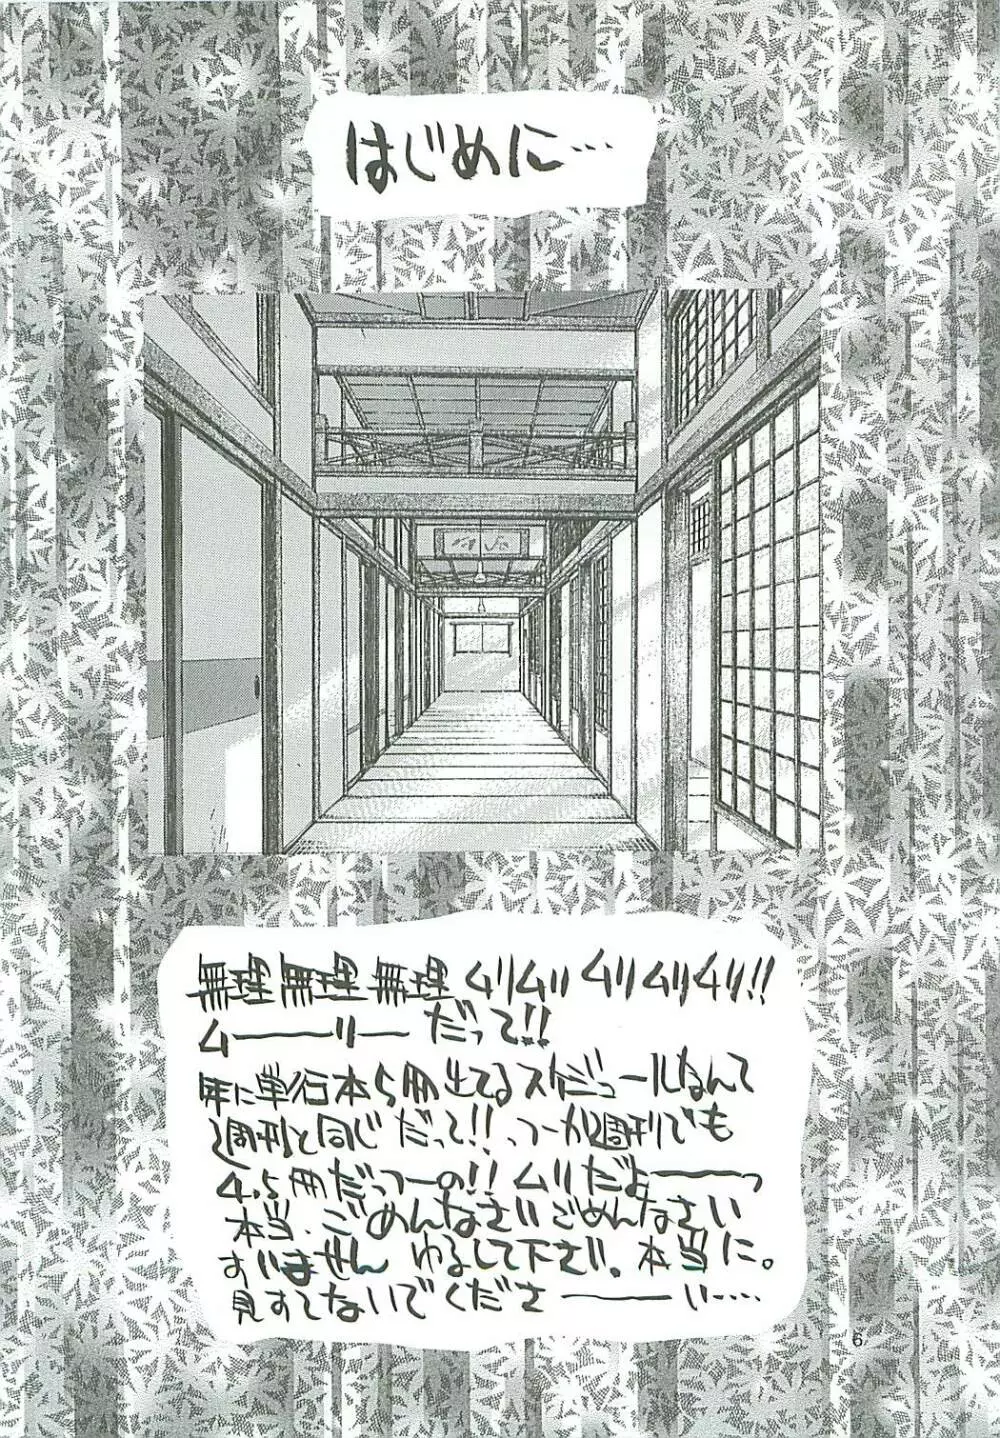 はじめに…
無理 無理 無理 ムリムリ ムリムリムリ!!
ムーーリー だって!!
年に単行本5冊出てるスケジュールなんて
週刊と同じだって!! っつーか週刊でも
4.5冊だっつーの!! ムリだよーーっ
本当、ごめんなさいごめんなさい
すいません ゆるして下さい。本当に。
見すてないでくださーーい……
6